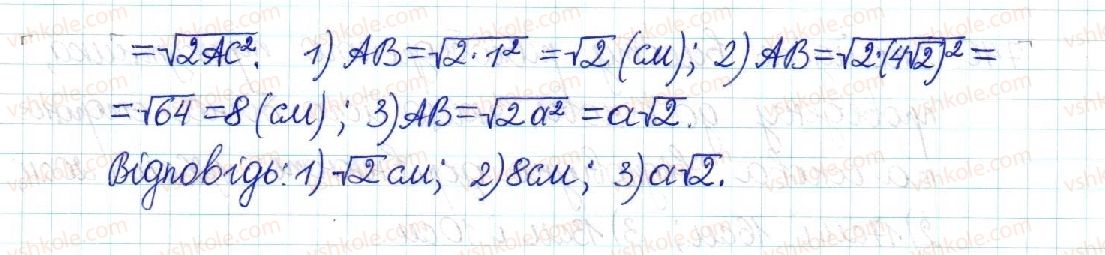 =√2AC². 1) AB=√2·1² =√2 (см); 2) AB=√2·(4√2)² =
=√64 =8 (см); 3) AB=√2a² =a√2.
Відповідь: 1) √2 см; 2) 8см; 3) a√2.